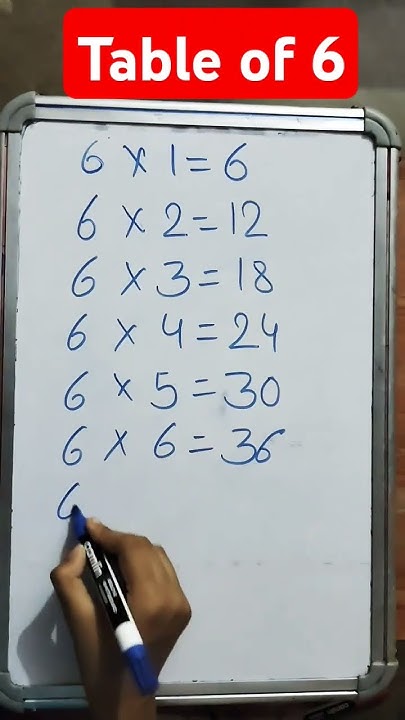 Table of 6
6 × 1 = 6
6 × 2 = 12
6 × 3 = 18
6 × 4 = 24
6 × 5 = 30
6 × 6 = 36
6
camlin